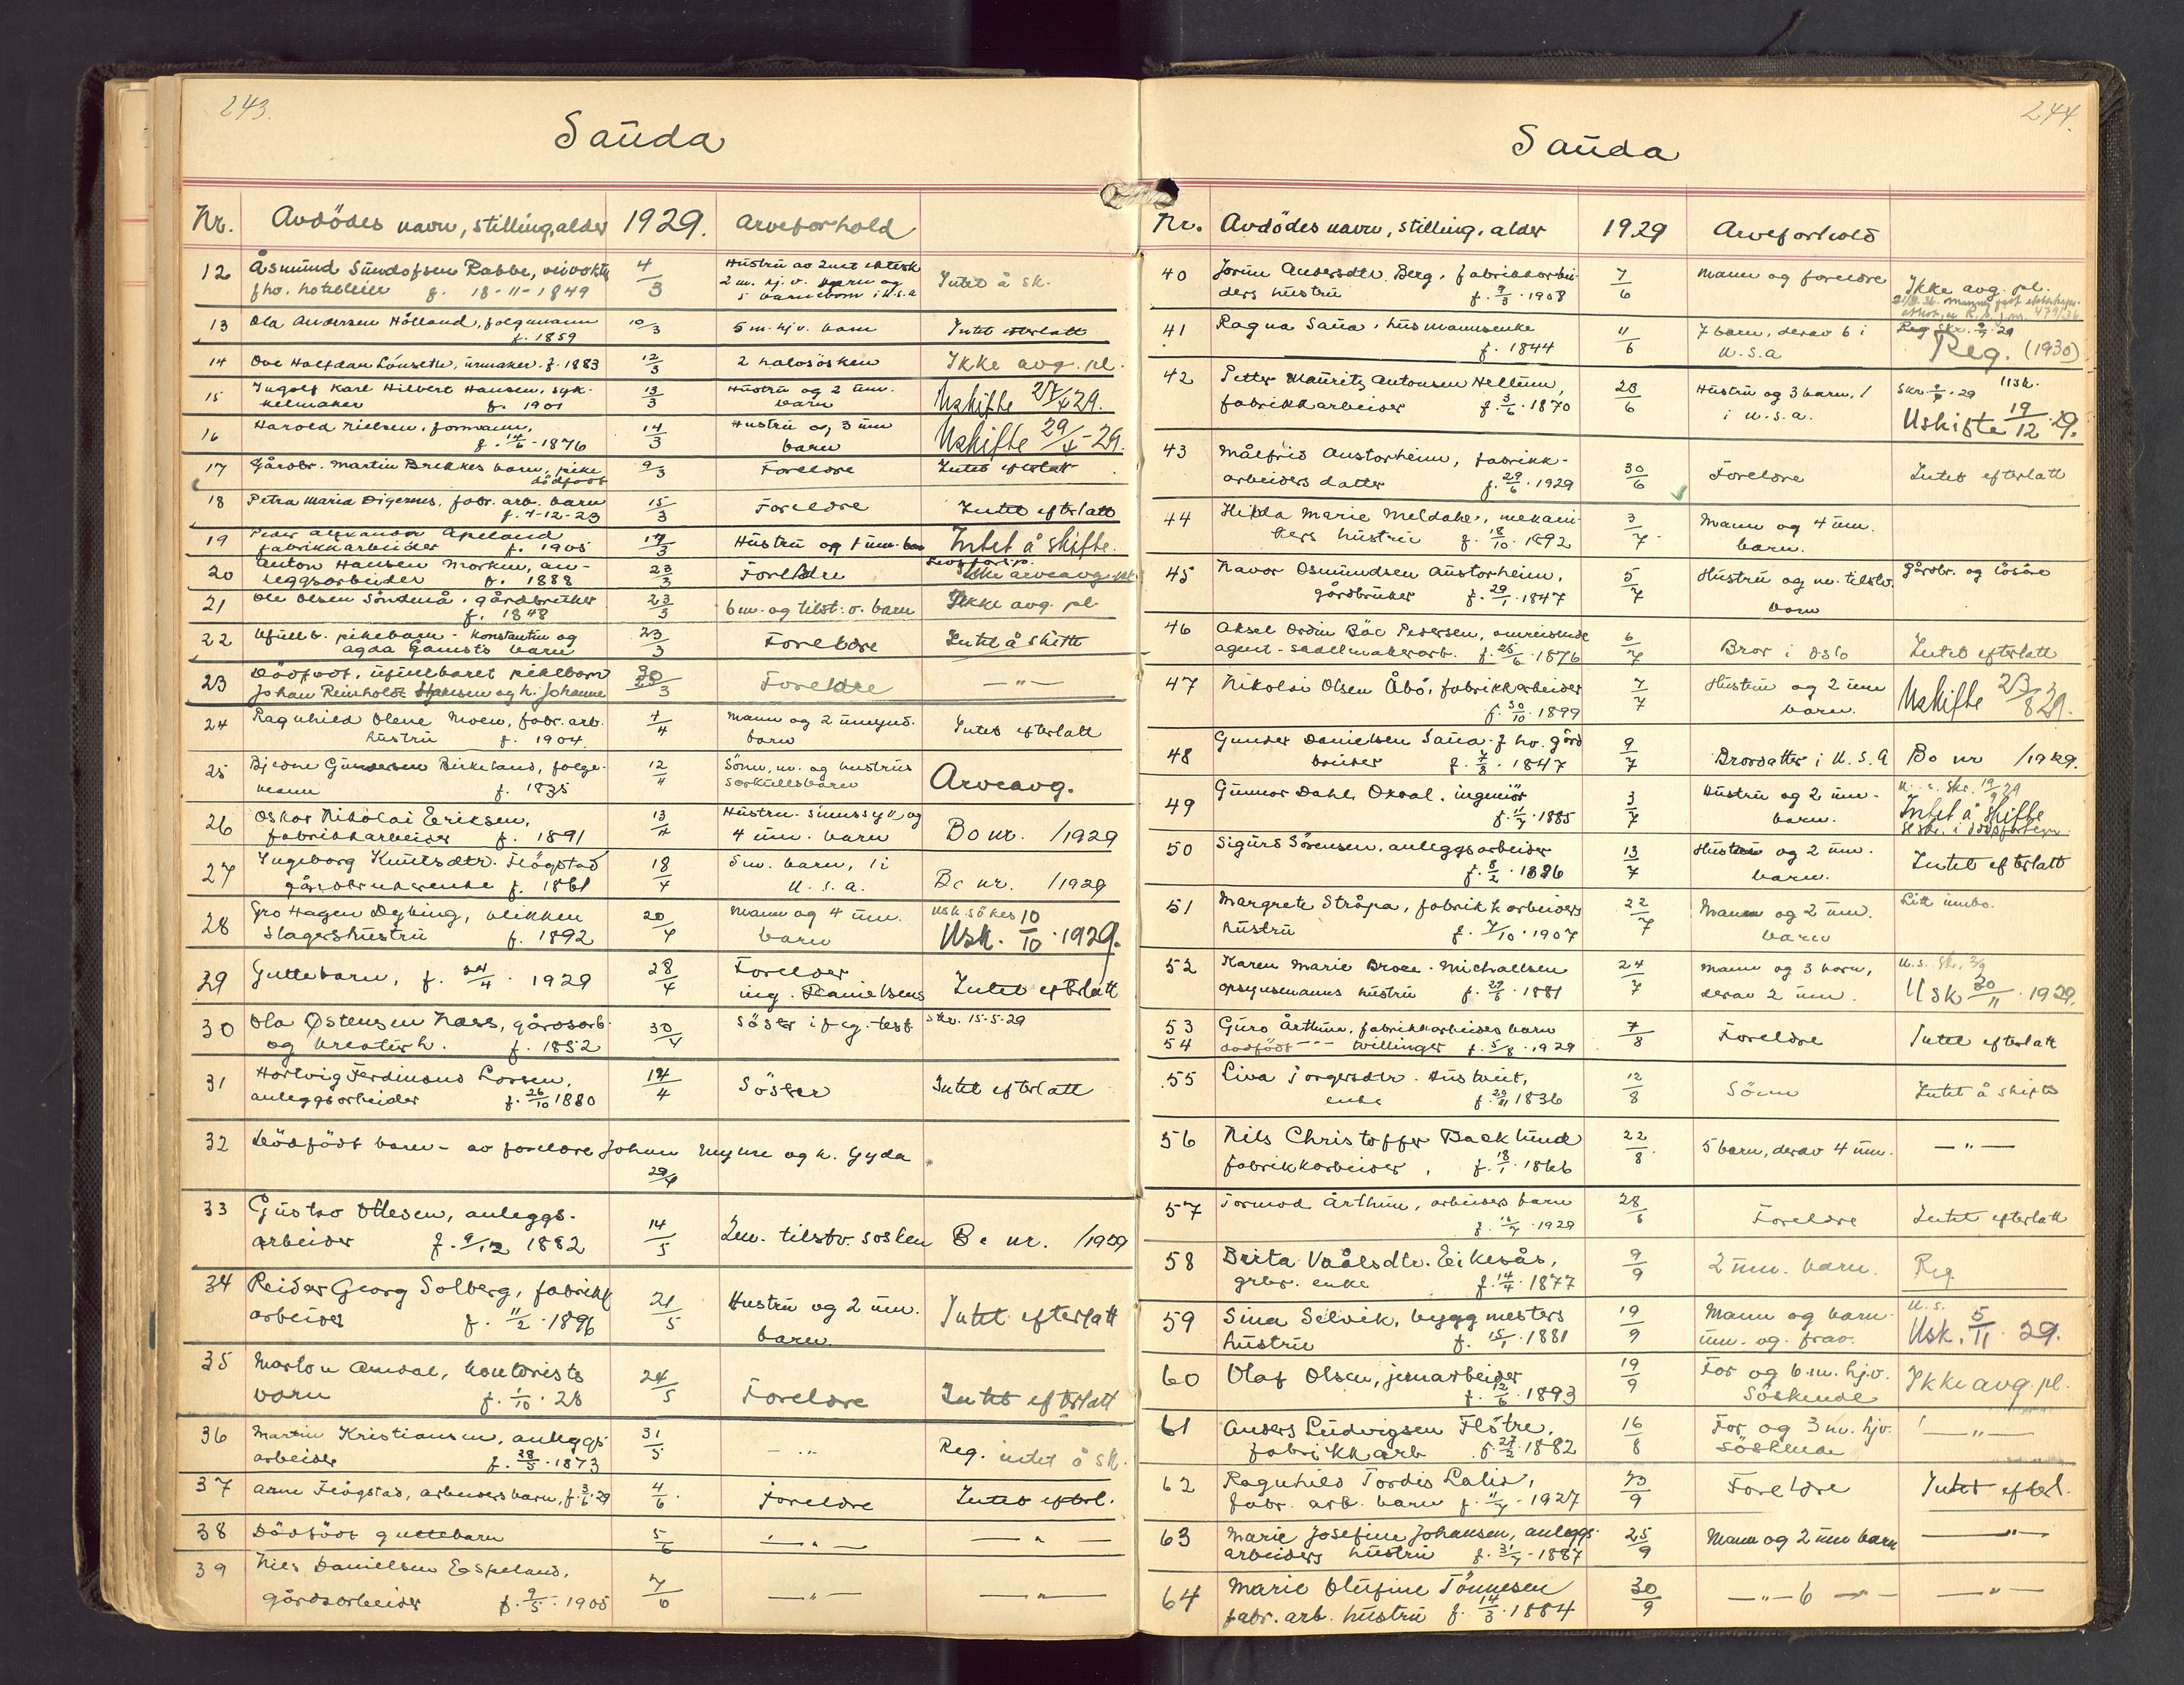 243.
Sauda
Nr. Avdödes navn, stilling, alder 1929. Arveforhold
12 Åsmund Sundofsen Rabbe, veivokter 4/3 Hustru av 2net ektesk.
fhv. hotelleier f. 18-11-1849 2 m. hj. v. barn og Intet å sk.
5 barnebarn i U.S.A
13 Ola Andersen Hölland, folgemann 10/3 5 m. hjv. barn Intet efterlatt
f. 1859
14 Ove Halfdan Lönseth, urmaker. f. 1883 12/3 2 halvsösken Ikke avg. pl.
15 Ingolf Karl Hilbert Hansen, syk- 13/3 Hustru og 2 um.
kelmaker f. 1901 barn Uskifte 27/4 29.
16 Harald Nielsen, formann, 14/3 Hustru og 3 um
f. 14/6-1876 barn Uskifte 29/4-29.
17 Gårdbr. Martin Brekkes barn, pike 9/3 Foreldre Intet efterlat
dödfödt
18 Petra Maria Digernes, fabr. arb. barn 15/3 Foreldre Intet efterlatt
f. 4-12-23
19 Peder Alexander Apeland 17/3 Hustru og 1 um. barn Intet å skifte.
fabrikkarbeider f. 1905
20 Anton Hansen Morken, an- 23/3 Foreldre
leggsarbeider f. 1888 Ikke arveavg. pl.
21 Ole Olsen Söndenå, gårdbruker 23/3 6 m. og tilst. v. barn Ikke avg. pl
f. 1848
22 Ufullb. pikebarn - Konstantin og 23/3 Foreldre Intet å skifte
Agda Gamsts barn
23 Dödfödt, ufullbaret pikebarn 20/3 Foreldre — " —
Johan Reinholdt og h. Johanne
24 Ragnhild Olene Moen, fabr. arb. 4/4 Mann og 2 umynd. Intet efterlatt
hustru f. 1904. barn
25 Bjedne Gundersen Birkeland, folge- 12/4 Sönn, m. og hustrus
mann f. 1835 særkullsbarn Arveavg.
26 Oskar Nikolai Eriksen, 13/4 Hustru. sinnssyk og
fabrikkarbeider f. 1891 4 um. barn Bo nr. /1929
27 Ingeborg Knutsdtr. Flögstad 18/4 5 m. barn, 1 i
gårdbrukerenke f. 1861 U.S.A. Bo nr. /1929
28 Gro Hagen Dybing, blikken 20/4 Mann og 4 um. Usk. sökes
slagershustru f. 1892 barn Usk. 10/10. 1929.
29 Guttebarn, f. 24/4. 1929 28/4 Forelder
ing. Danielsens Intet efterlatt
30 Ola Østensen Næss, gårdsarb. 30/4 Söster iflg. test. Skr. 15.5.29
og kreaturh. f. 1852
31 Hartvig Ferdinand Larsen, 14/4 Söster Intet efterlatt
anleggsarbeider f. 26/10 1880
32 Dödfödt barn - av foreldre Johan Myhre og h. Gyda
29/4
33 Gustav Ottesen, anleggs-
arbeider f. 9/12 1882 14/5 2 m. tilstv. sösken Bo nr. /1929
34 Reidar Georg Solberg, fabrikk
arbeider f. 11/2. 1896 21/5 Hustru og 2 um. Intet efterlatt
barn
35 Marton Amdal, kontorists
barn f. 1/10. 28 24/5 Foreldre Intet efterlatt
36 Martin Kristiansen, anleggs- 31/5 — " — Reg. intet å sk.
arbeider f. 28/5. 1873
37 Arne Flögstad, arbeiders barn, f. 3/6. 29 4/6 Foreldre Intet efterl.
38 Dödfödt guttebarn 5/6 — " — — " —
39 Nils Danielsen Espeland,
gårdsarbeider f. 9/5. 1905 7/6 — " — — " —
244.
Sauda
Nr. Avdödes navn, stilling, alder 1929 Arveforhold
40 Jorun Andersdtr. Berg, fabrikkarbei- 7/6 Mann og foreldre Ikke avg. pl.
ders hustru f. 9/3. 1908
41 Ragna Saua, husmannsenke 11/6 7 barn, derav 6 i Reg. Skr. 29
f. 1844 U.S.A Reg. (1930)
42 Petter Mauritz Antonsen Hellum, 23/6 Hustru og 3 barn, 1
fabrikkarbeider f. 3/6. 1870 i U.S.A. Uskifte 19/12. 29.
43 Målfrid Austarheim, fabrikk-
arbeiders datter f. 29/6. 1929 30/6 Foreldre Intet efterlatt
44 Hilda Marie Meldahl, mekani- 3/7 Mann og 4 um.
kers hustru f. 18/10. 1892 barn.
45 Navar Osmundsen Austarheim, 5/7 Hustru og m. tilstv. Gårdbr. og lösöre
gårdbruker f. 29/1. 1847 barn
46 Aksel Ordin Böe Pedersen, omreisende 6/7
agent - sadelmakerarb. f. 25/6. 1876 Bror i Oslo Intet efterlatt
47 Nikolai Olsen Åbö, fabrikkarbeider 7/7 Hustru og 2 um Uskifte 23/8 29.
f. 30/10. 1899 barn.
48 Gunder Danielsen Saua. fhv. gård
bruker f. 7/8. 1847 9/7 Brordatter i U.S.A Bo nr /1929.
49 Gunnar Dahle Oxval, ingeniör 3/7 Hustru og 2 um. U.S. Skr. 19/9 29
f. 11/7. 1885 barn. Intet å skifte
50 Sigurd Sörensen, anleggsarbeider 13/7 Hustru og 2 um.
f. 8/2. 1896 barn. Intet efterlatt
51 Margrete Stråpa, fabrikkarbeiders 22/7 Mann og 2 um. Litt innbo.
hustru f. 7/10. 1907 barn
52 Karen Marie Broee. Michaelsen 24/7 Mann og 3 barn, U.S. Skr.
opsynsmanns hustru f. 29/6. 1881 derav 2 um. Usk 20/11. 1929.
53 Guro Årthun, fabrikkarbeiders barn 7/8 Foreldre Intet efterlatt
54 dödfödt — " — tvillinger f. 5/8. 1929
55 Liva Torgersdtr. Hustveit, 12/8 Sönn Intet å skifte
enke f. 29/11 1836
56 Nils Christoffer Backlund 22/8 5 barn, derav 4 um. — " —
fabrikkarbeider, f. 18/1. 1866
57 Tormod Årthun, arbeiders barn 28/8 Foreldre Intet efterlatt
1929
58 Brita Vrålsdtr. Eikesås, 9/9 2 um. barn. Reg.
grbr. enke f. 14/4. 1877
59 Sina Selvik, byggmesters 19/9 Mann og barn U.S.
hustru f. 15/1. 1881 um. og frav. Usk. 5/11. 29.
60 Olaf Olsen, jernarbeider 19/9 Far og 6 m. hjv. Ikke avg. pl.
f. 12/6. 1893 Söskende
61 Anders Ludvigsen Flötre, 16/8 Far og 3 m. hjv. — " —
fabrikkarb f. 27/2. 1882 Söskende
62 Ragnhild Tordis Lalid, 23/9 Foreldre Intet efterl.
fabr. arb. barn f. 11/4 - 1927
63 Marie Josefine Johansen, anleggs- 25/9 Mann og 2 um barn — " —
arbeiders hustru f. 31/7 - 1887
64 Marie Olufine Tönnesen 30/9 — " — 6 — " — — " —
fabr. arb. hustru f. 14/3. 1884